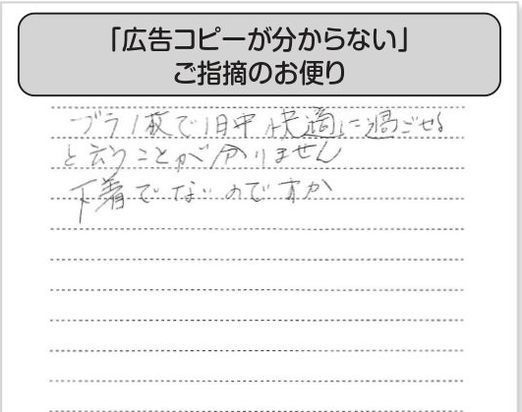 「広告コピーが分からない」
ご指摘のお便り
ブラ1枚で1日中快適に過ごせる
と云うことが分りません
下着でないのですか